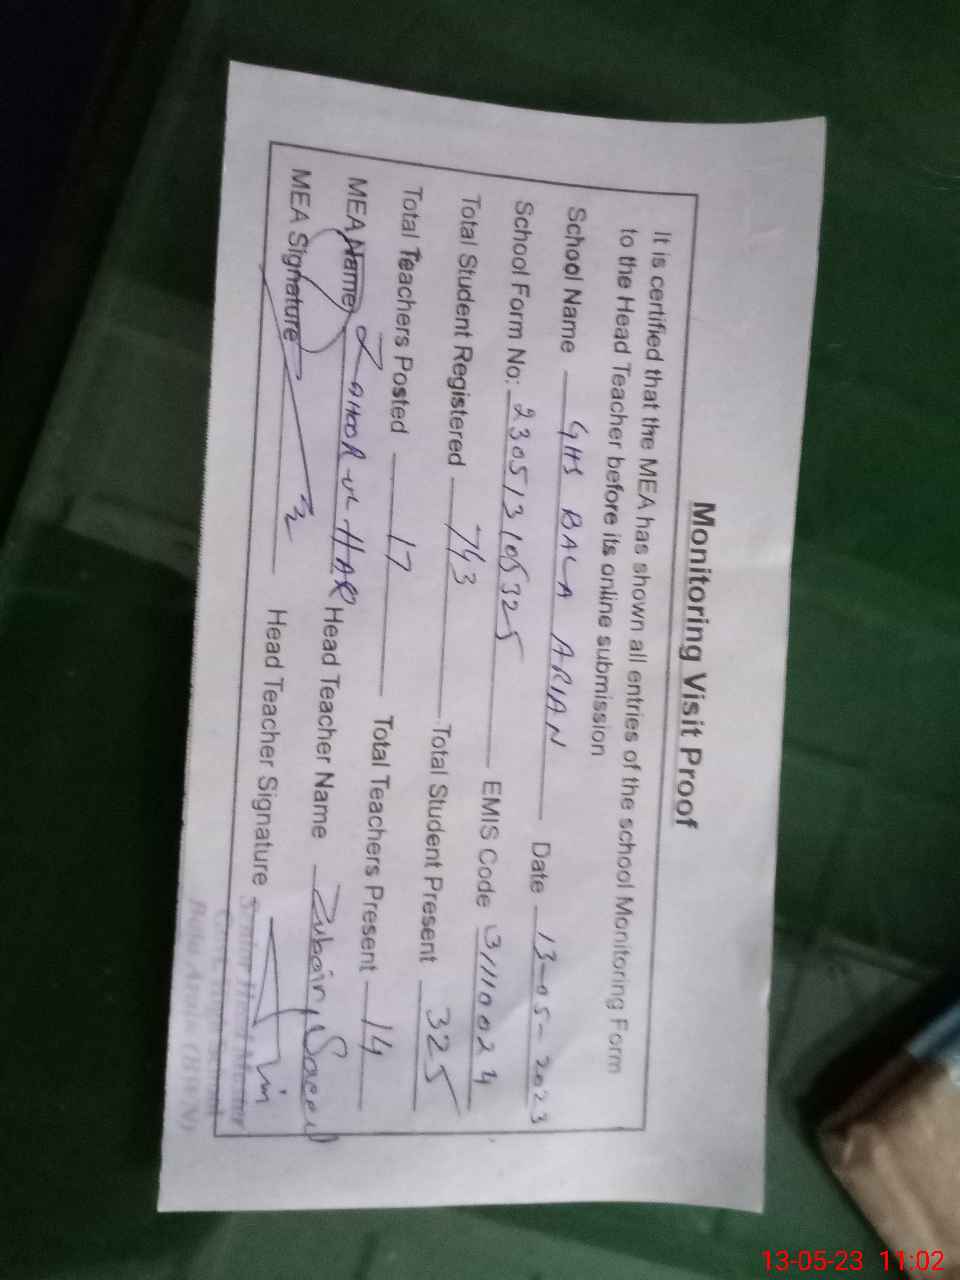 Monitoring Visit Proof
It is certified that the MEA has shown all entries of the school Monitoring Form
to the Head Teacher before its online submission
School Name GHS BALA ARIAN Date 13-05-2023
School Form No: 230513105325 EMIS Code 31110024
Total Student Registered 743 Total Student Present 325
Total Teachers Posted 17 Total Teachers Present 14
MEA Name ZAHOOR-UL-HAR Head Teacher Name Zubair Saeed
MEA Signature Head Teacher Signature
Senior Head Master
13-05-23 11:02